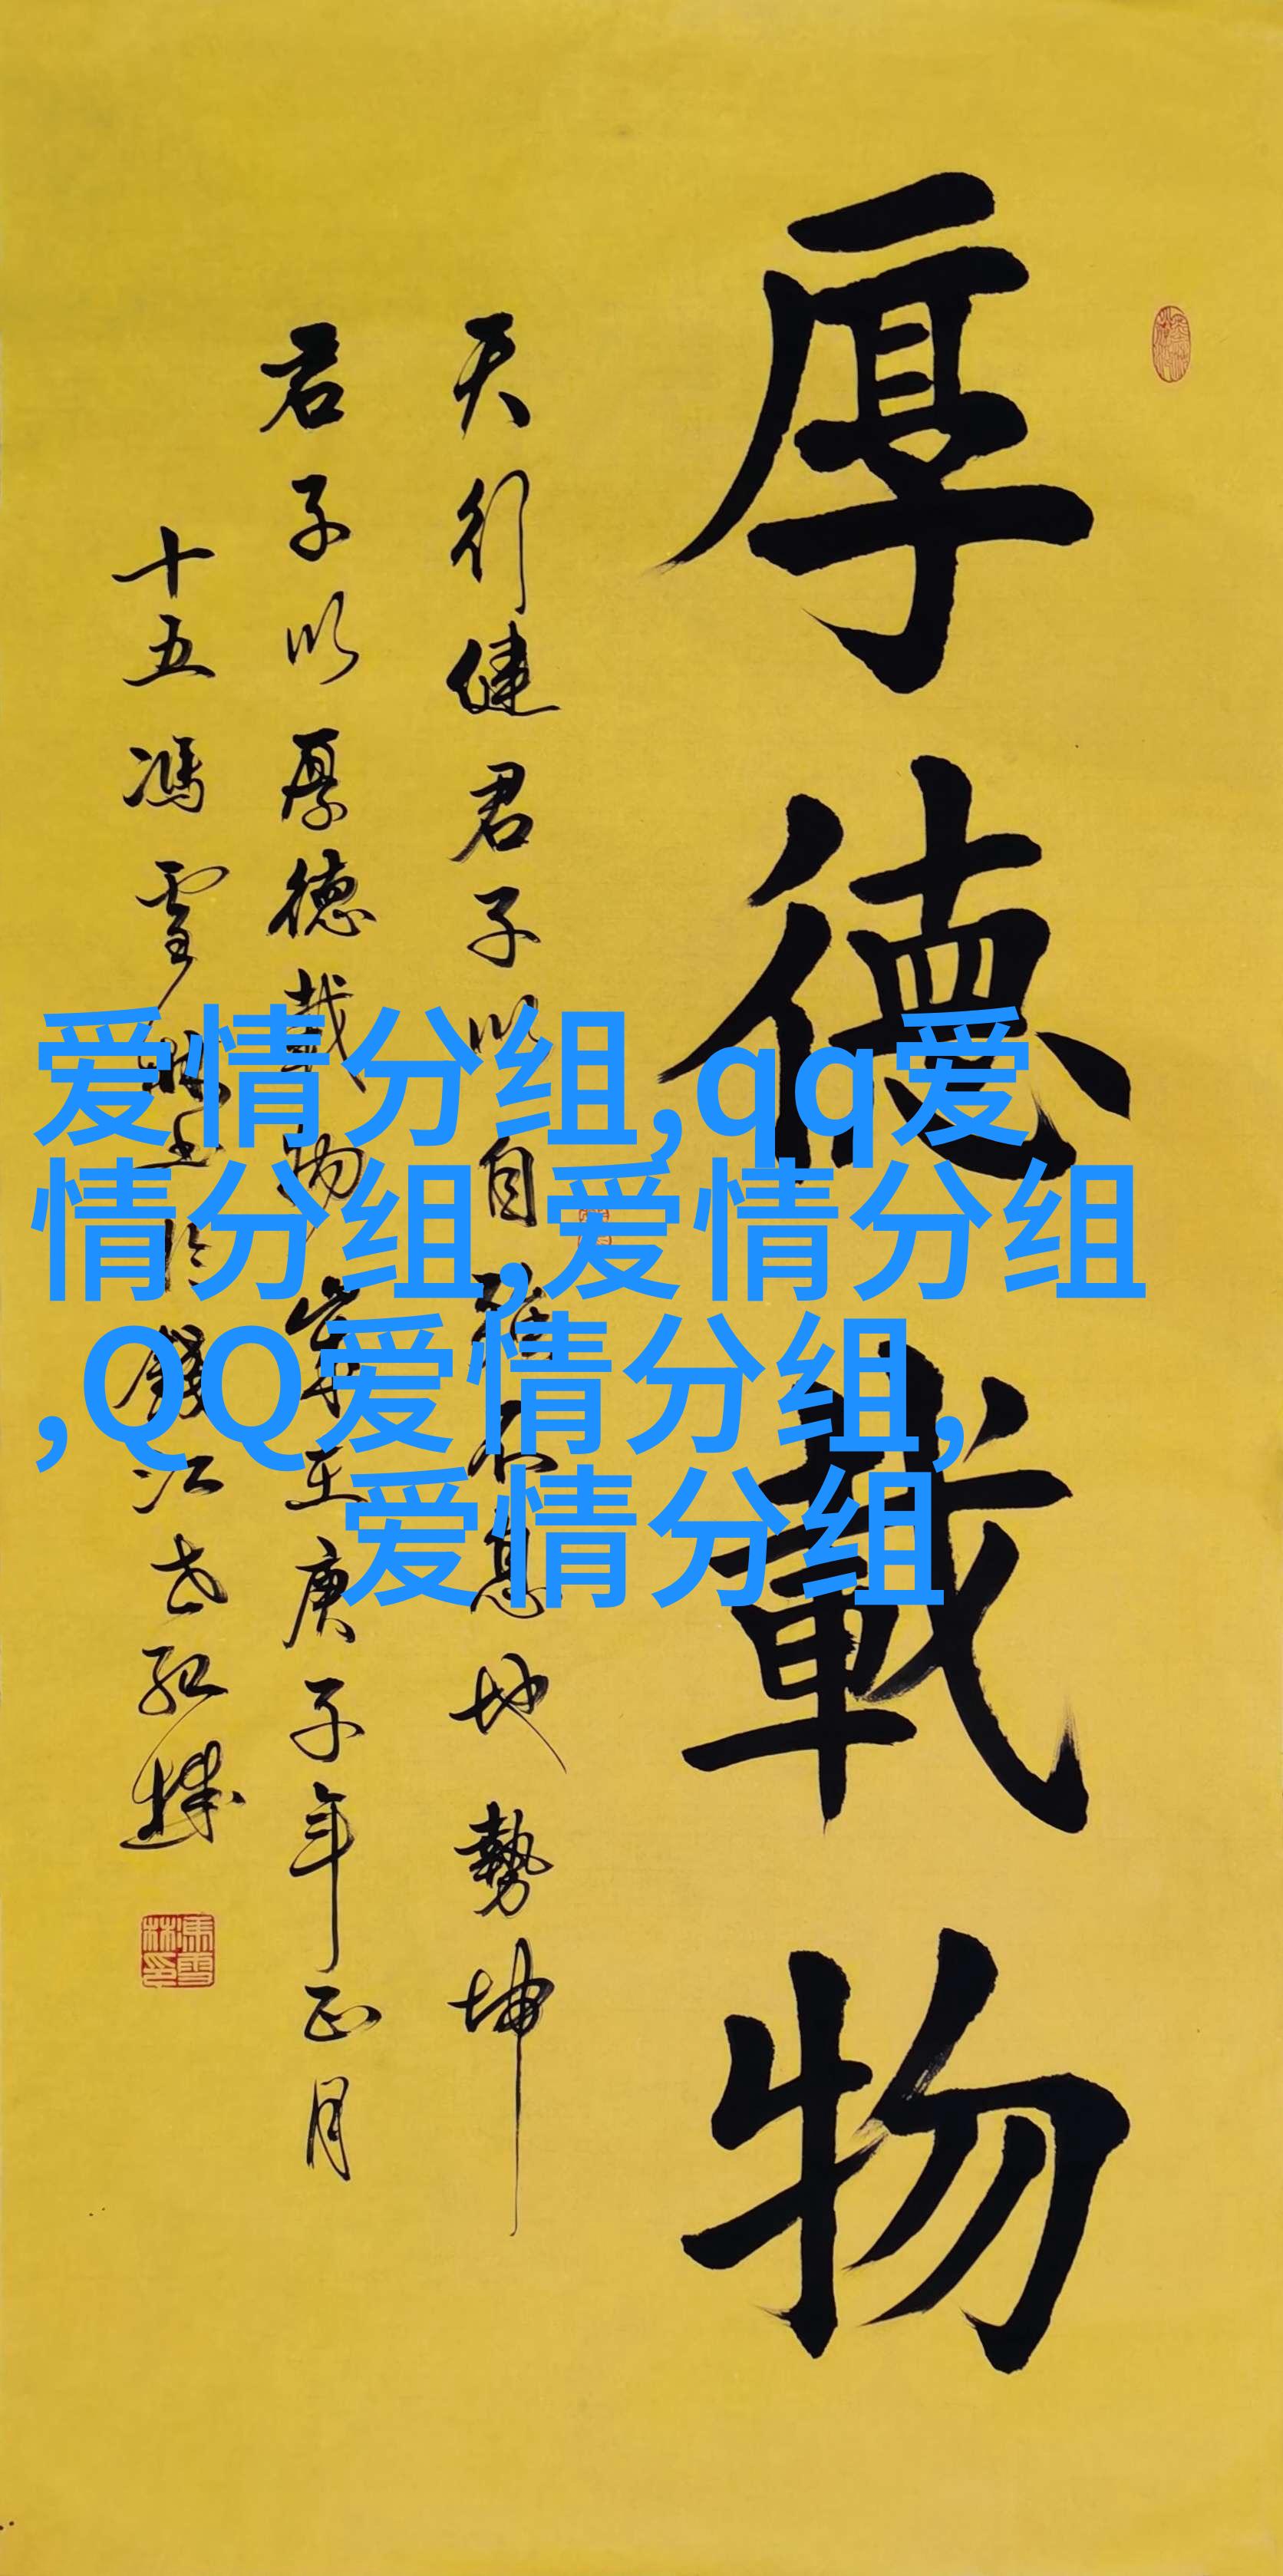 厚德載物
天行健君子以自强不息地勢坤
君子以厚德載物 歲在庚子年正月
十五馮雪林書於錢江
馮雪林印
爱情分组,qq爱
情分组,爱情分组
,QQ爱情分组,
爱情分组